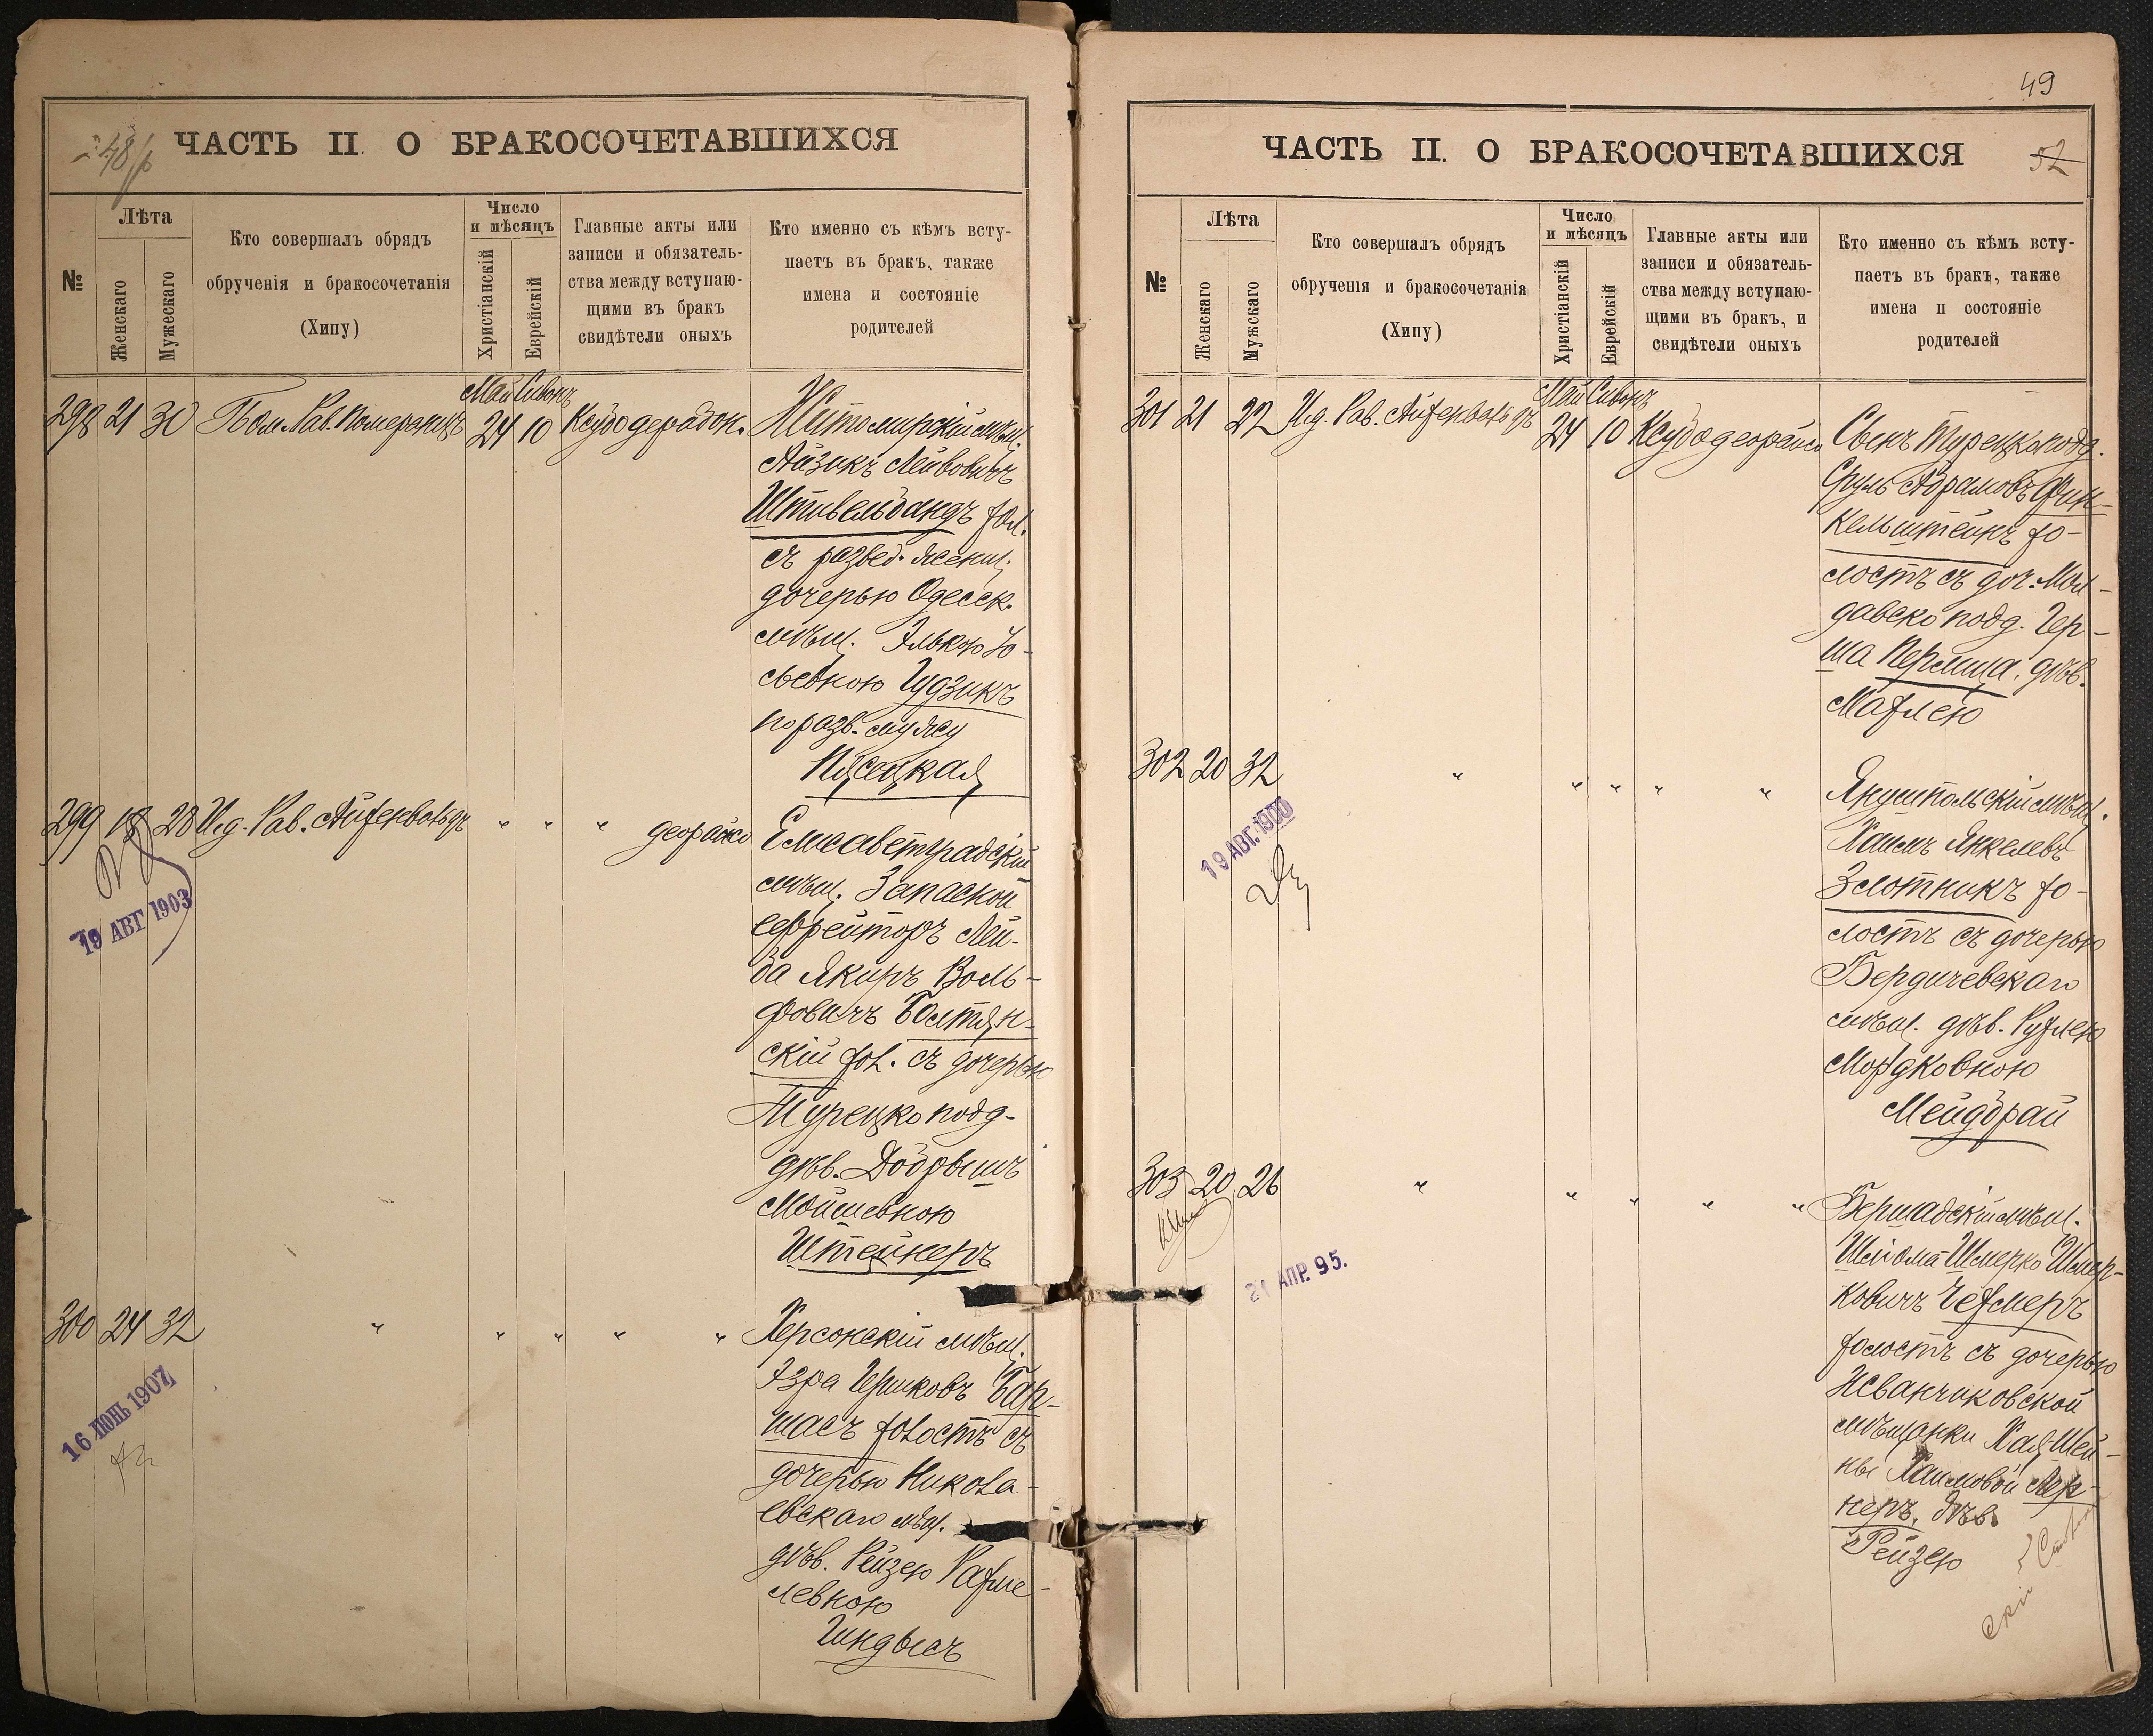 48
ЧАСТЬ II О БРАКОСОЧЕТАВШИХСЯ
№
Лѣта
Женскаго
Мужескаго
Кто совершалъ обрядъ
обрученія и бракосочетанія
(Хипу)
Число
и мѣсяцъ
Христіанскій
Еврейскій
Главные акты или
записи и обязатель-
ства между вступаю-
щими въ бракъ
свидѣтели оныхъ
Кто именно съ кѣмъ всту-
паетъ въ бракъ, также
имена и состояніе
родителей
298 21 30 Пом. Рав. Померанцъ
Май Сивонъ
24 10 Ксубо дерабон.
Житомирскій мѣщ.
Айзикъ Лейбовичъ
Штивельбандъ хол.
съ развед. женщ.
дочерью Одесск.
мѣщ. Элькою Іо-
сьевною Гудзикъ
по разв. мужу
Пясецкая
299 18 28 Ид. Рав. Айхенвальдъ " " " деорайсо
19 АВГ 1903
Елисаветградскій
мѣщ. Запасной
ефрейторъ Лей-
ба Якиръ Воль-
фовичъ Болтян-
скій хол. съ дочерью
Турецко подд.
дѣв. Добрышъ
Мойшевною
Штейнеръ
300 24 32 " " " " "
16 ІЮНЬ 1907
Херсонскій мѣщ.
Эзра Гершковъ Бар-
шасъ холостъ съ
дочерью Никола-
евскаго мѣщ.
дѣв. Рейзею Рахме-
левною
Гиндысъ
49
ЧАСТЬ II. О БРАКОСОЧЕТАВШИХСЯ 52
№
Лѣта
Женскаго
Мужскаго
Кто совершалъ обрядъ
обрученія и бракосочетанія
(Хипу)
Число
и мѣсяцъ
Христіанскій
Еврейскій
Главные акты или
записи и обязатель-
ства между вступаю-
щими въ бракъ, и
свидѣтели оныхъ
Кто именно съ кѣмъ всту-
паетъ въ бракъ, также
имена и состояніе
родителей
301 21 22 Ид. Рав. Айхенвальдъ
Май Сивонъ
24 10 Ксубо деорайсо
Сынъ Турецко подд.
Сруль Абрамовъ Фин-
кельштейнъ хо-
лостъ съ доч. Мол-
давско подд. Гер-
ша Перлиша, дѣв.
Махлею
302 20 32 " " " " "
19 АВГ. 1900
Янушпольскій мѣщ.
Хаимъ Янкелевъ
Злотникъ хо-
лостъ съ дочерью
Бердичевскаго
мѣщ. дѣв. Рухлею
Мордковною
Мейдбрай
303 20 26 " " " " "
21 АПР. 95.
Бершадскій мѣщ.
Шліома-Шмерко Шмер-
ковичъ Чехмеръ
холостъ съ дочерью
Исванчиковской
мѣщанки Хая-Шей-
ны Хаимовой Лер-
неръ, дѣв.
Рейзею